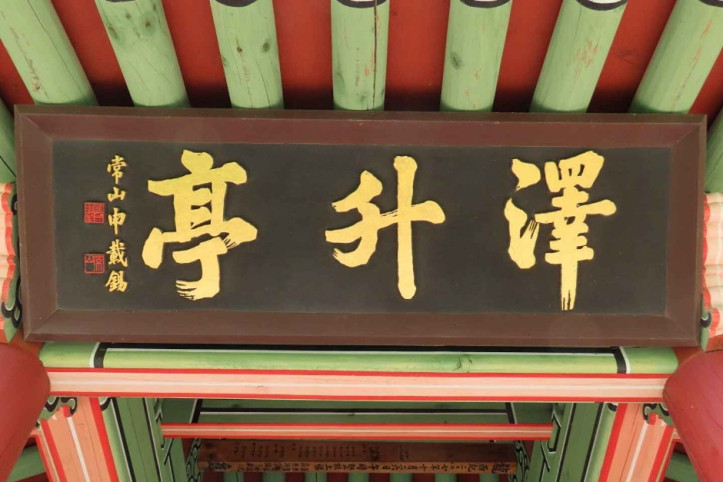 澤升亭
常山申載錫